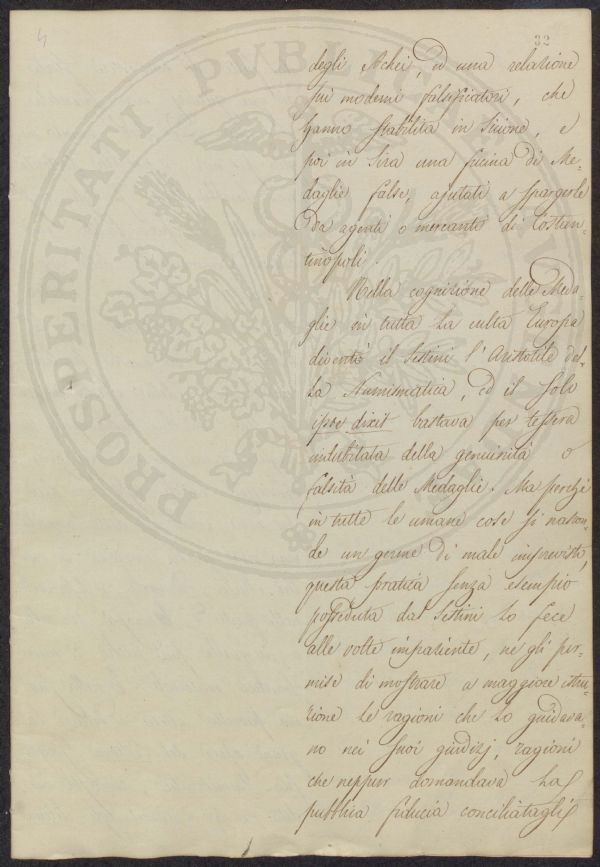 4
32
PROSPERITATI PVBLICAE
degli Achei, ed una relazione
sui moderni falsificatori, che
hanno stabilita in Sicione, e
poi in Sira una fucina di Me-
daglie false, ajutati a spargerle
da agenti o mercanti di Costan-
tinopoli.
Nella cognizione delle Meda-
glie in tutta la culta Europa
diventò il Sestini l'Aristotile del-
la Numismatica, ed il solo
ipse dixit bastava per tessera
indubitata della genuinità o
falsità delle Medaglie. Ma perchè
in tutte le umane cose si nascon-
de un germe di male imprevisto,
questa pratica senza esempio
posseduta dal Sestini lo fece
alle volte impaziente, nè gli per-
mise di mostrare a maggiore istru-
zione le ragioni che lo guidava-
no nei suoi giudizj, ragioni
che neppur domandava la
pubblica fiducia conciliatagli